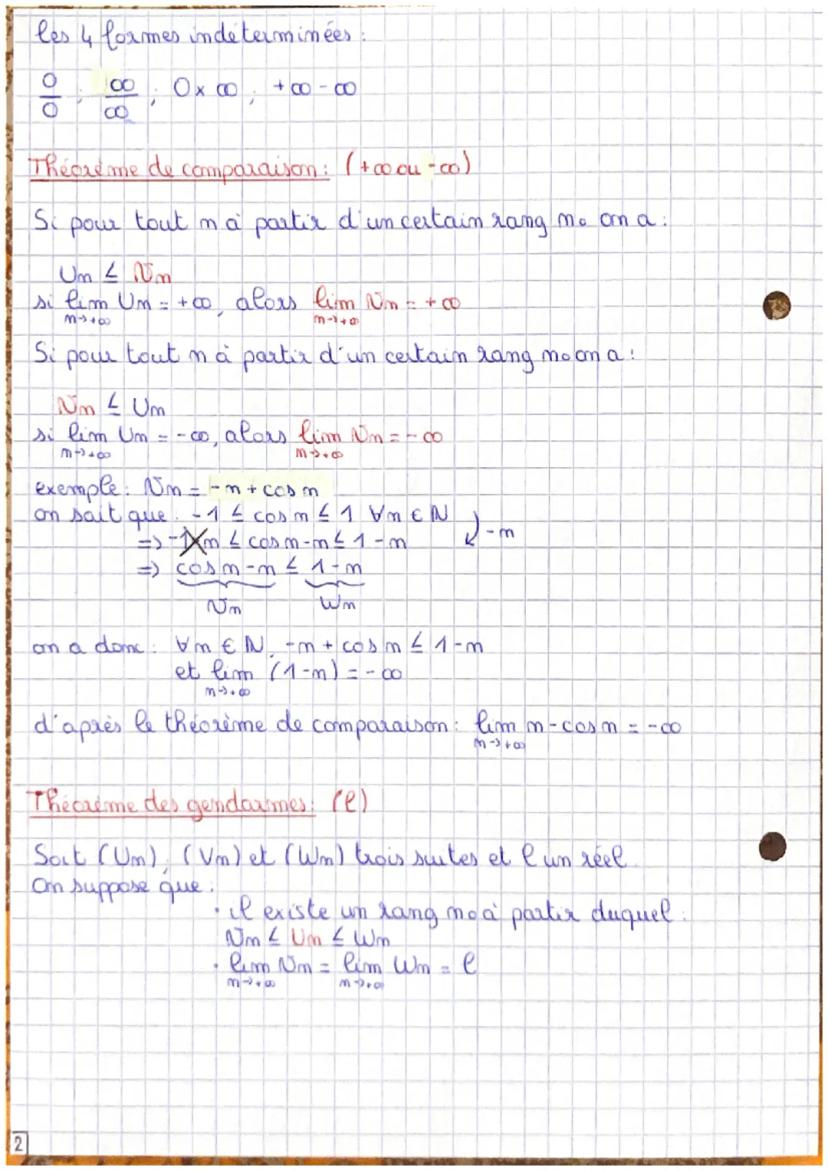 les 4 formes indéterminées :
0/0 ; ∞/∞ ; 0 × ∞ ; +∞ - ∞
Théorème de comparaison : (+∞ ou -∞)
Si pour tout n à partir d'un certain rang n₀ on a :
Un ≤ Vn
si lim Un = +∞, alors lim Vn = +∞
n→+∞ n→+∞
Si pour tout n à partir d'un certain rang n₀ on a :
Vn ≤ Un
si lim Un = -∞, alors lim Vn = -∞
n→+∞ n→+∞
exemple : Vn = -n + cos n
on sait que : -1 ≤ cos n ≤ 1 ∀n ∈ N
-n
=> -1-n ≤ cos n - n ≤ 1 - n
=> cos n - n ≤ 1 - n
Vn Wn
on a donc : ∀n ∈ N, -n + cos n ≤ 1 - n
et lim (1-n) = -∞
n→+∞
d'après le théorème de comparaison : lim n - cos n = -∞
n→+∞
Théorème des gendarmes : (l)
Soit (Un), (Vn) et (Wn) trois suites et l un réel.
On suppose que :
· il existe un rang n₀ à partir duquel :
Vn ≤ Un ≤ Wn
· lim Vn = lim Wn = l
n→+∞ n→+∞
2